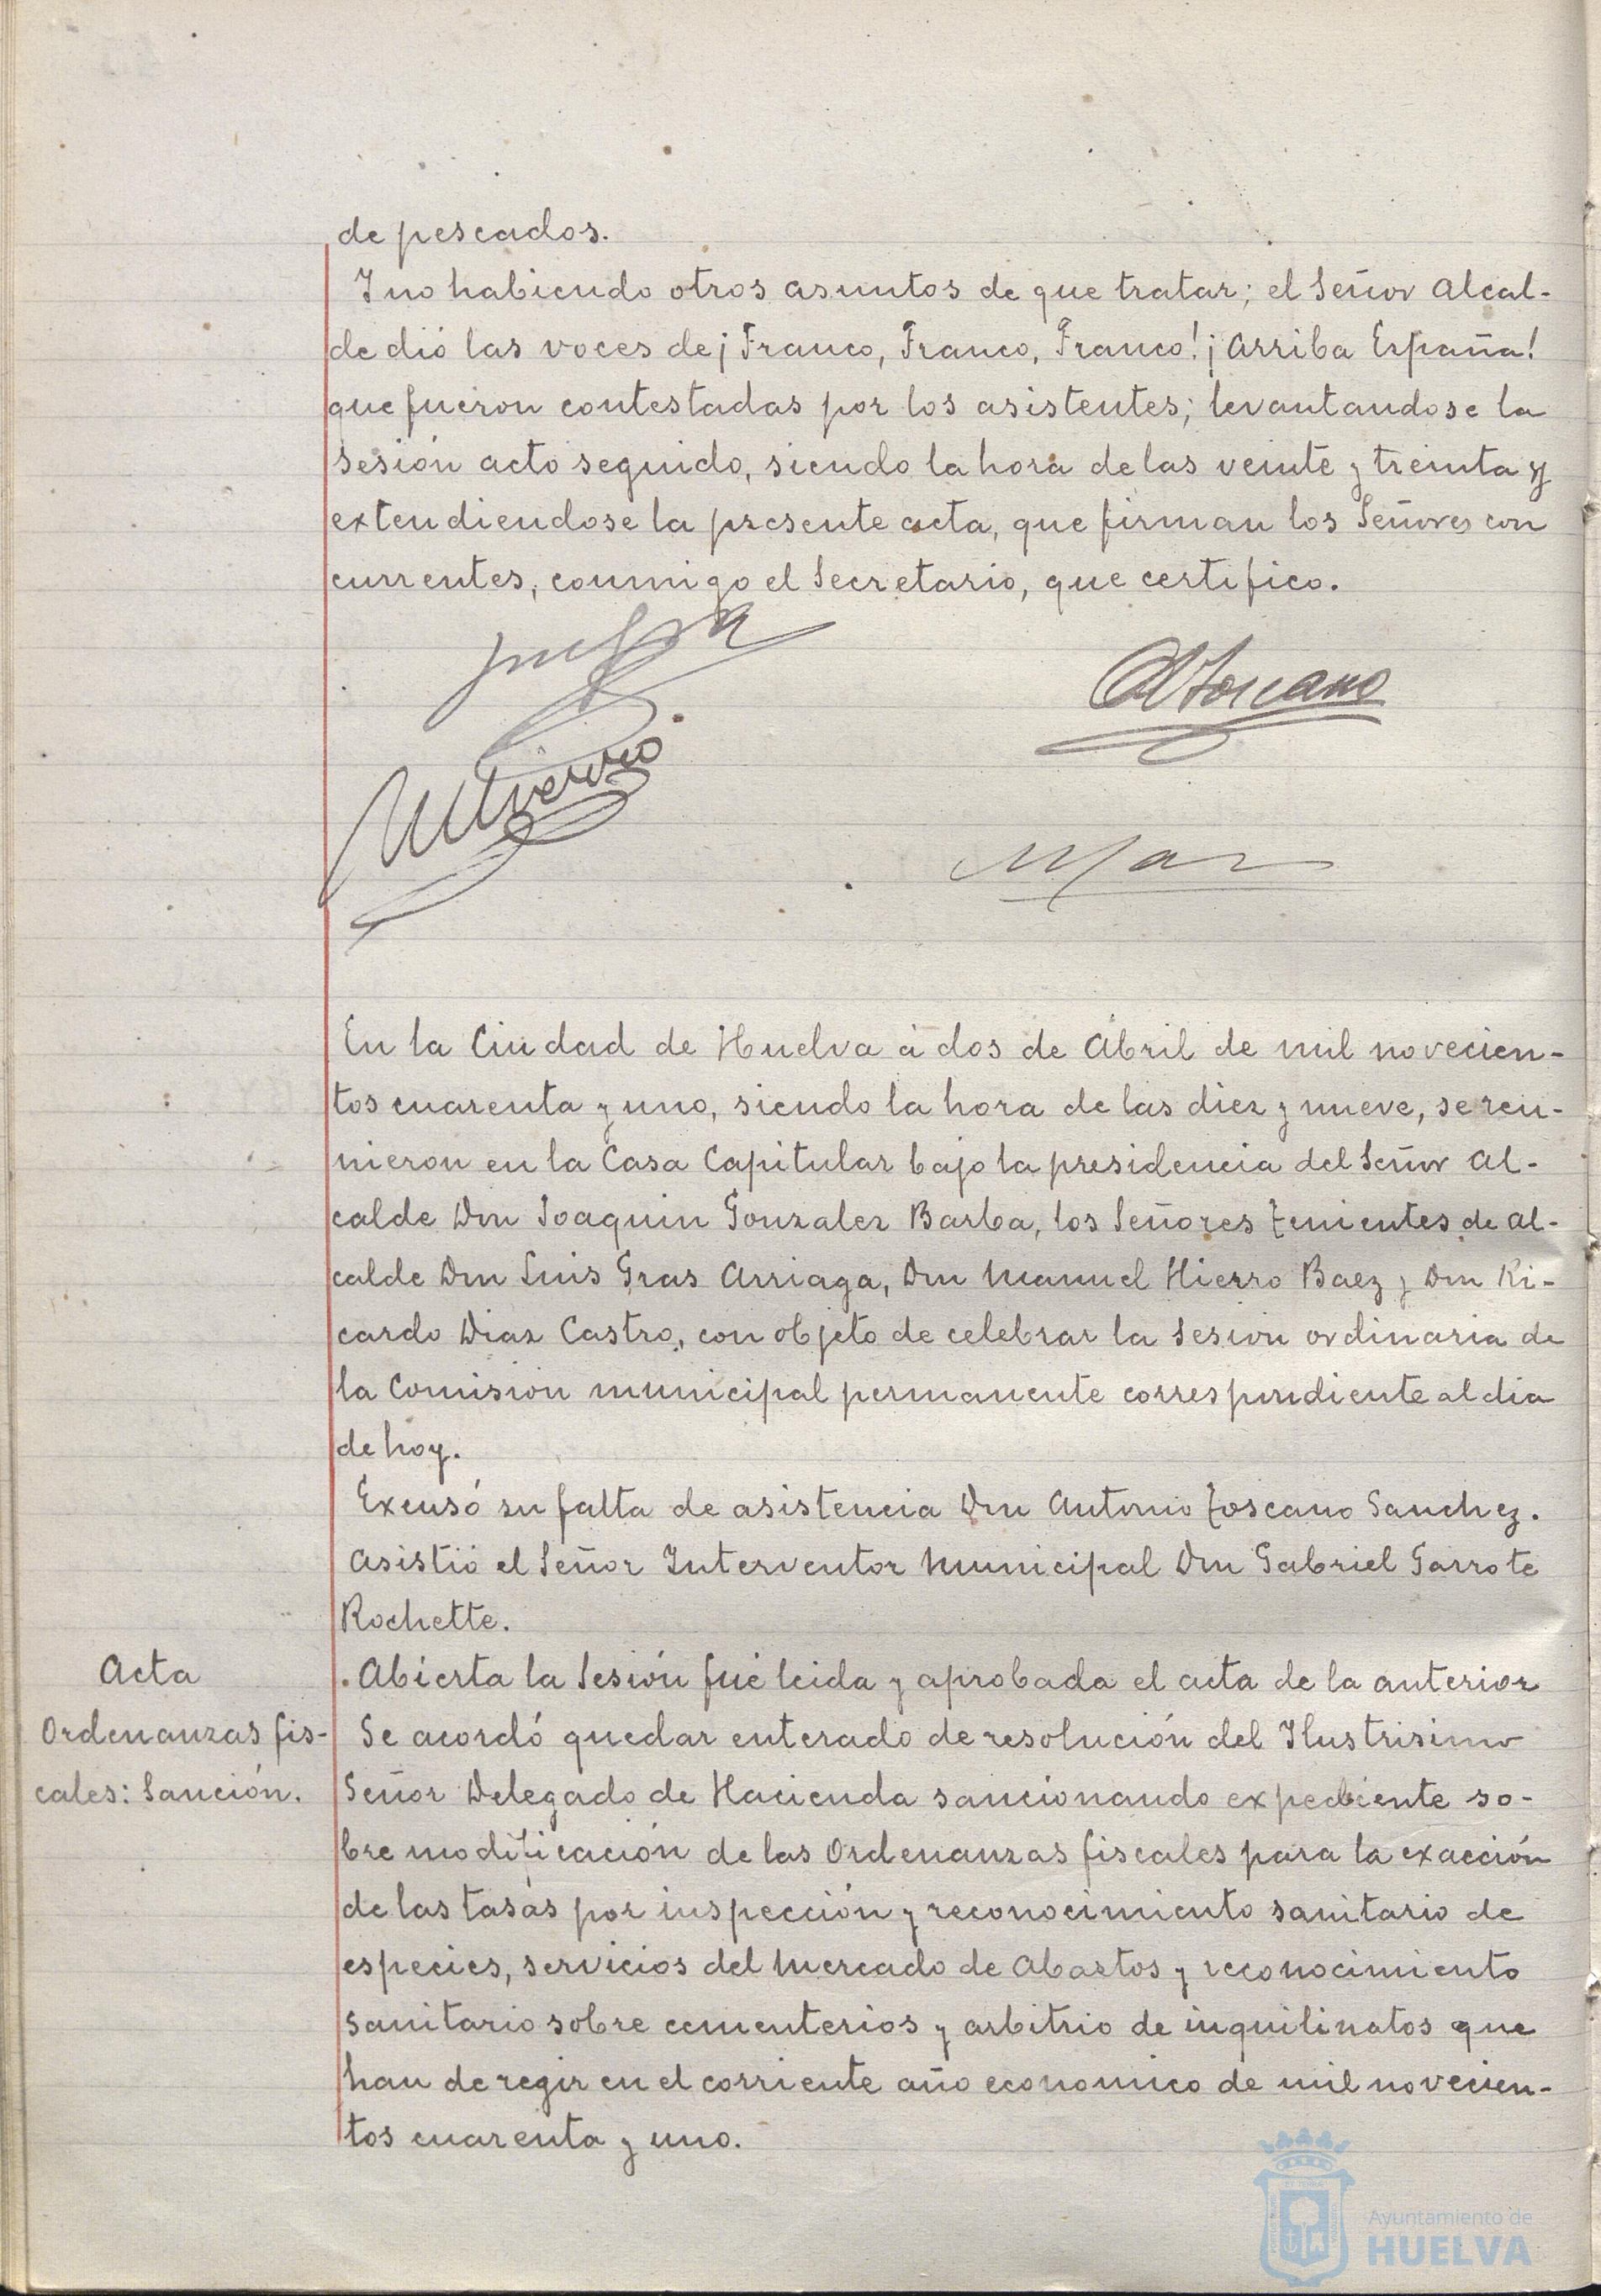 de pescados.
Y no habiendo otros asuntos de que tratar; el Señor Alcal-
de dió las voces de ¡Franco, Franco, Franco! ¡Arriba España!
que fueron contestadas por los asistentes; levantandose la
sesión acto seguido, siendo la hora de las veinte y treinta y
extendiendose la presente acta, que firman los Señores con
currentes, conmigo el Secretario, que certifico.
AToscano
MHierro
En la Ciudad de Huelva á dos de Abril de mil novecien-
tos cuarenta y uno, siendo la hora de las diez y nueve, se reu-
nieron en la Casa Capitular bajo la presidencia del Señor Al-
calde Don Joaquin Gonzalez Barba, los Señores Tenientes de Al-
calde Don Luis Gras Arriaga, Don Manuel Hierro Baez y Don Ri-
cardo Diaz Castro, con objeto de celebrar la sesion ordinaria de
la Comision municipal permanente correspondiente al dia
de hoy.
Excusó su falta de asistencia Don Antonio Toscano Sanchez.
Asistió el Señor Interventor Municipal Don Gabriel Garrote
Rochette.
Acta
Abierta la Sesión fué leida y aprobada el acta de la anterior
Ordenanzas fis-
cales: Sanción.
Se acordó quedar enterado de resolución del Ilustrisimo
Señor Delegado de Hacienda sancionando expediente so-
bre modificación de las Ordenanzas fiscales para la exacción
de las tasas por inspección y reconocimiento sanitario de
especies, servicios del Mercado de Abastos y reconocimiento
sanitario sobre cementerios y arbitrio de inquilinatos que
han de regir en el corriente año economico de mil novecien-
tos cuarenta y uno.
Ayuntamiento de
HUELVA